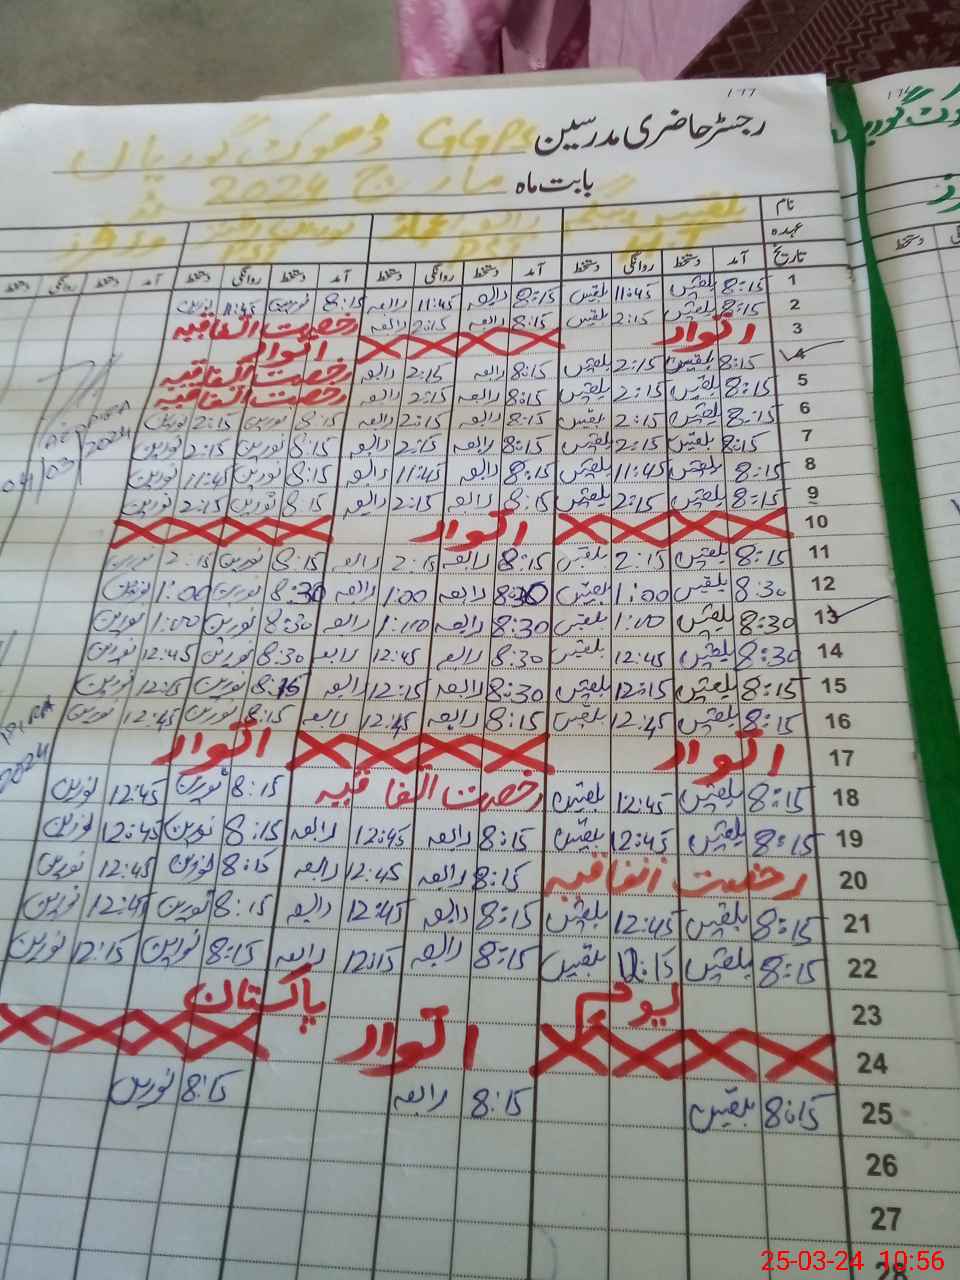 رجسٹر حاضری مدرسین GGPS ڈھوک گوریاں
بابت ماہ مارچ 2024
نام بلقیس بیگم
عہدہ PST
تاریخ آمد دستخط روانگی دستخط آمد دستخط روانگی دستخط آمد دستخط روانگی دستخط آمد دستخط روانگی دستخط
1 8:15 بلقیس 11:45 بلقیس 8:15 رابعہ 11:45 رابعہ 8:15 نورین 11:45 نورین
2 8:15 بلقیس 2:15 بلقیس 8:15 رابعہ 2:15 رابعہ رخصت اتفاقیہ
3 اتوار اتوار
4 8:15 بلقیس 2:15 بلقیس 8:15 رابعہ 2:15 رابعہ رخصت اتفاقیہ
5 8:15 بلقیس 2:15 بلقیس 8:15 رابعہ 2:15 رابعہ رخصت اتفاقیہ
6 8:15 بلقیس 2:15 بلقیس 8:15 رابعہ 2:15 رابعہ 8:15 نورین 2:15 نورین
7 8:15 بلقیس 2:15 بلقیس 8:15 رابعہ 2:15 رابعہ 8:15 نورین 2:15 نورین
8 8:15 بلقیس 11:45 بلقیس 8:15 رابعہ 11:45 رابعہ 8:15 نورین 11:45 نورین
9 8:15 بلقیس 2:15 بلقیس 8:15 رابعہ 2:15 رابعہ 8:15 نورین 2:15 نورین
10 اتوار
11 8:15 بلقیس 2:15 بلقیس 8:15 رابعہ 2:15 رابعہ 8:15 نورین 2:15 نورین
12 8:30 بلقیس 1:00 بلقیس 8:30 رابعہ 1:00 رابعہ 8:30 نورین 1:00 نورین
13 8:30 بلقیس 1:00 بلقیس 8:30 رابعہ 1:00 رابعہ 8:30 نورین 1:00 نورین
14 8:30 بلقیس 12:45 بلقیس 8:30 رابعہ 12:45 رابعہ 8:30 نورین 12:45 نورین
15 8:15 بلقیس 12:15 بلقیس 8:30 رابعہ 12:15 رابعہ 8:15 نورین 12:15 نورین
16 8:15 بلقیس 12:45 بلقیس 8:15 رابعہ 12:45 رابعہ 8:15 نورین 12:45 نورین
17 اتوار اتوار
18 8:15 بلقیس 12:45 بلقیس رخصت اتفاقیہ 8:15 نورین 12:45 نورین
19 8:15 بلقیس 12:45 بلقیس 8:15 رابعہ 12:45 رابعہ 8:15 نورین 12:45 نورین
20 رخصت اتفاقیہ 8:15 رابعہ 12:45 رابعہ 8:15 نورین 12:45 نورین
21 8:15 بلقیس 12:45 بلقیس 8:15 رابعہ 12:45 رابعہ 8:15 نورین 12:45 نورین
22 8:15 بلقیس 12:15 بلقیس 8:15 رابعہ 12:15 رابعہ 8:15 نورین 12:15 نورین
23 یوم پاکستان
24 اتوار
25 8:15 بلقیس 8:15 رابعہ 8:15 نورین
26
27
28
04/03/2024
2024
25-03-24 10:56